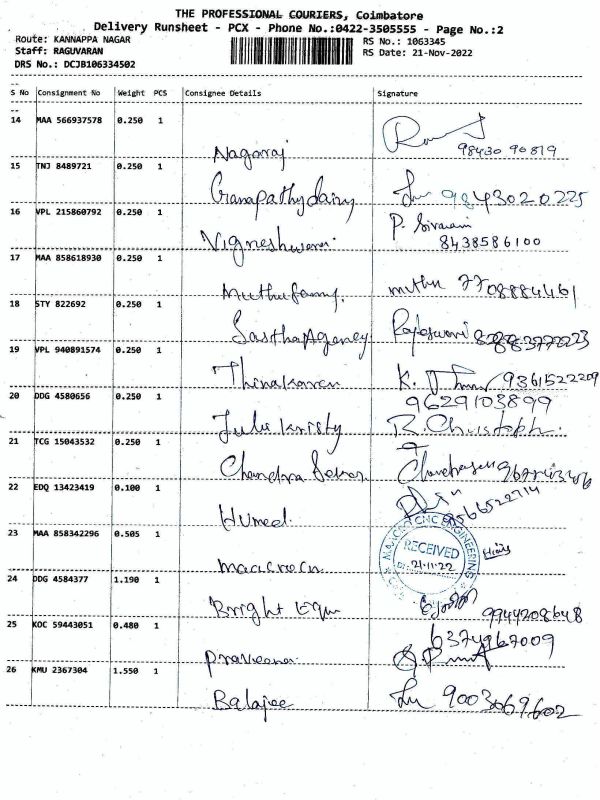 THE PROFESSIONAL COURIERS, Coimbatore
Delivery Runsheet - PCX - Phone No.:0422-3505555 - Page No.:2
Route: KANNAPPA NAGAR RS No.: 1063345
Staff: RAGUVARAN RS Date: 21-Nov-2022
DRS No.: DCJB106334502
S No Consignment No Weight PCS Consignee Details Signature
14 MAA 566937578 0.250 1
Nagaraj 98430 90819
15 TNJ 8489721 0.250 1
Ganapathy dairy 9843020225
16 VPL 215860792 0.250 1 P. Sivaram
Vigneshwara. 8438586100
17 MAA 858618930 0.250 1
Muthu fammy. muthu 7708884461
18 STY 822692 0.250 1
Sastha Agency Rajeswari
19 VPL 940891574 0.250 1
Thinakaran K. 9361522209
20 DDG 4580656 0.250 1 9629103899
Julie Kristy R. Christoph.
21 TCG 15043532 0.250 1
Chandra Sekar
22 EDQ 13423419 0.100 1
Humed 9566522714
23 MAA 858342296 0.505 1
macrocn CNC ENGINEERING RECEIVED 21-11-22
24 DDG 4584377 1.190 1
Bright Equ 9944208648
25 KOC 59443051 0.480 1 6374967009
Praveena
26 KMU 2367304 1.550 1
Balajee 9003069602